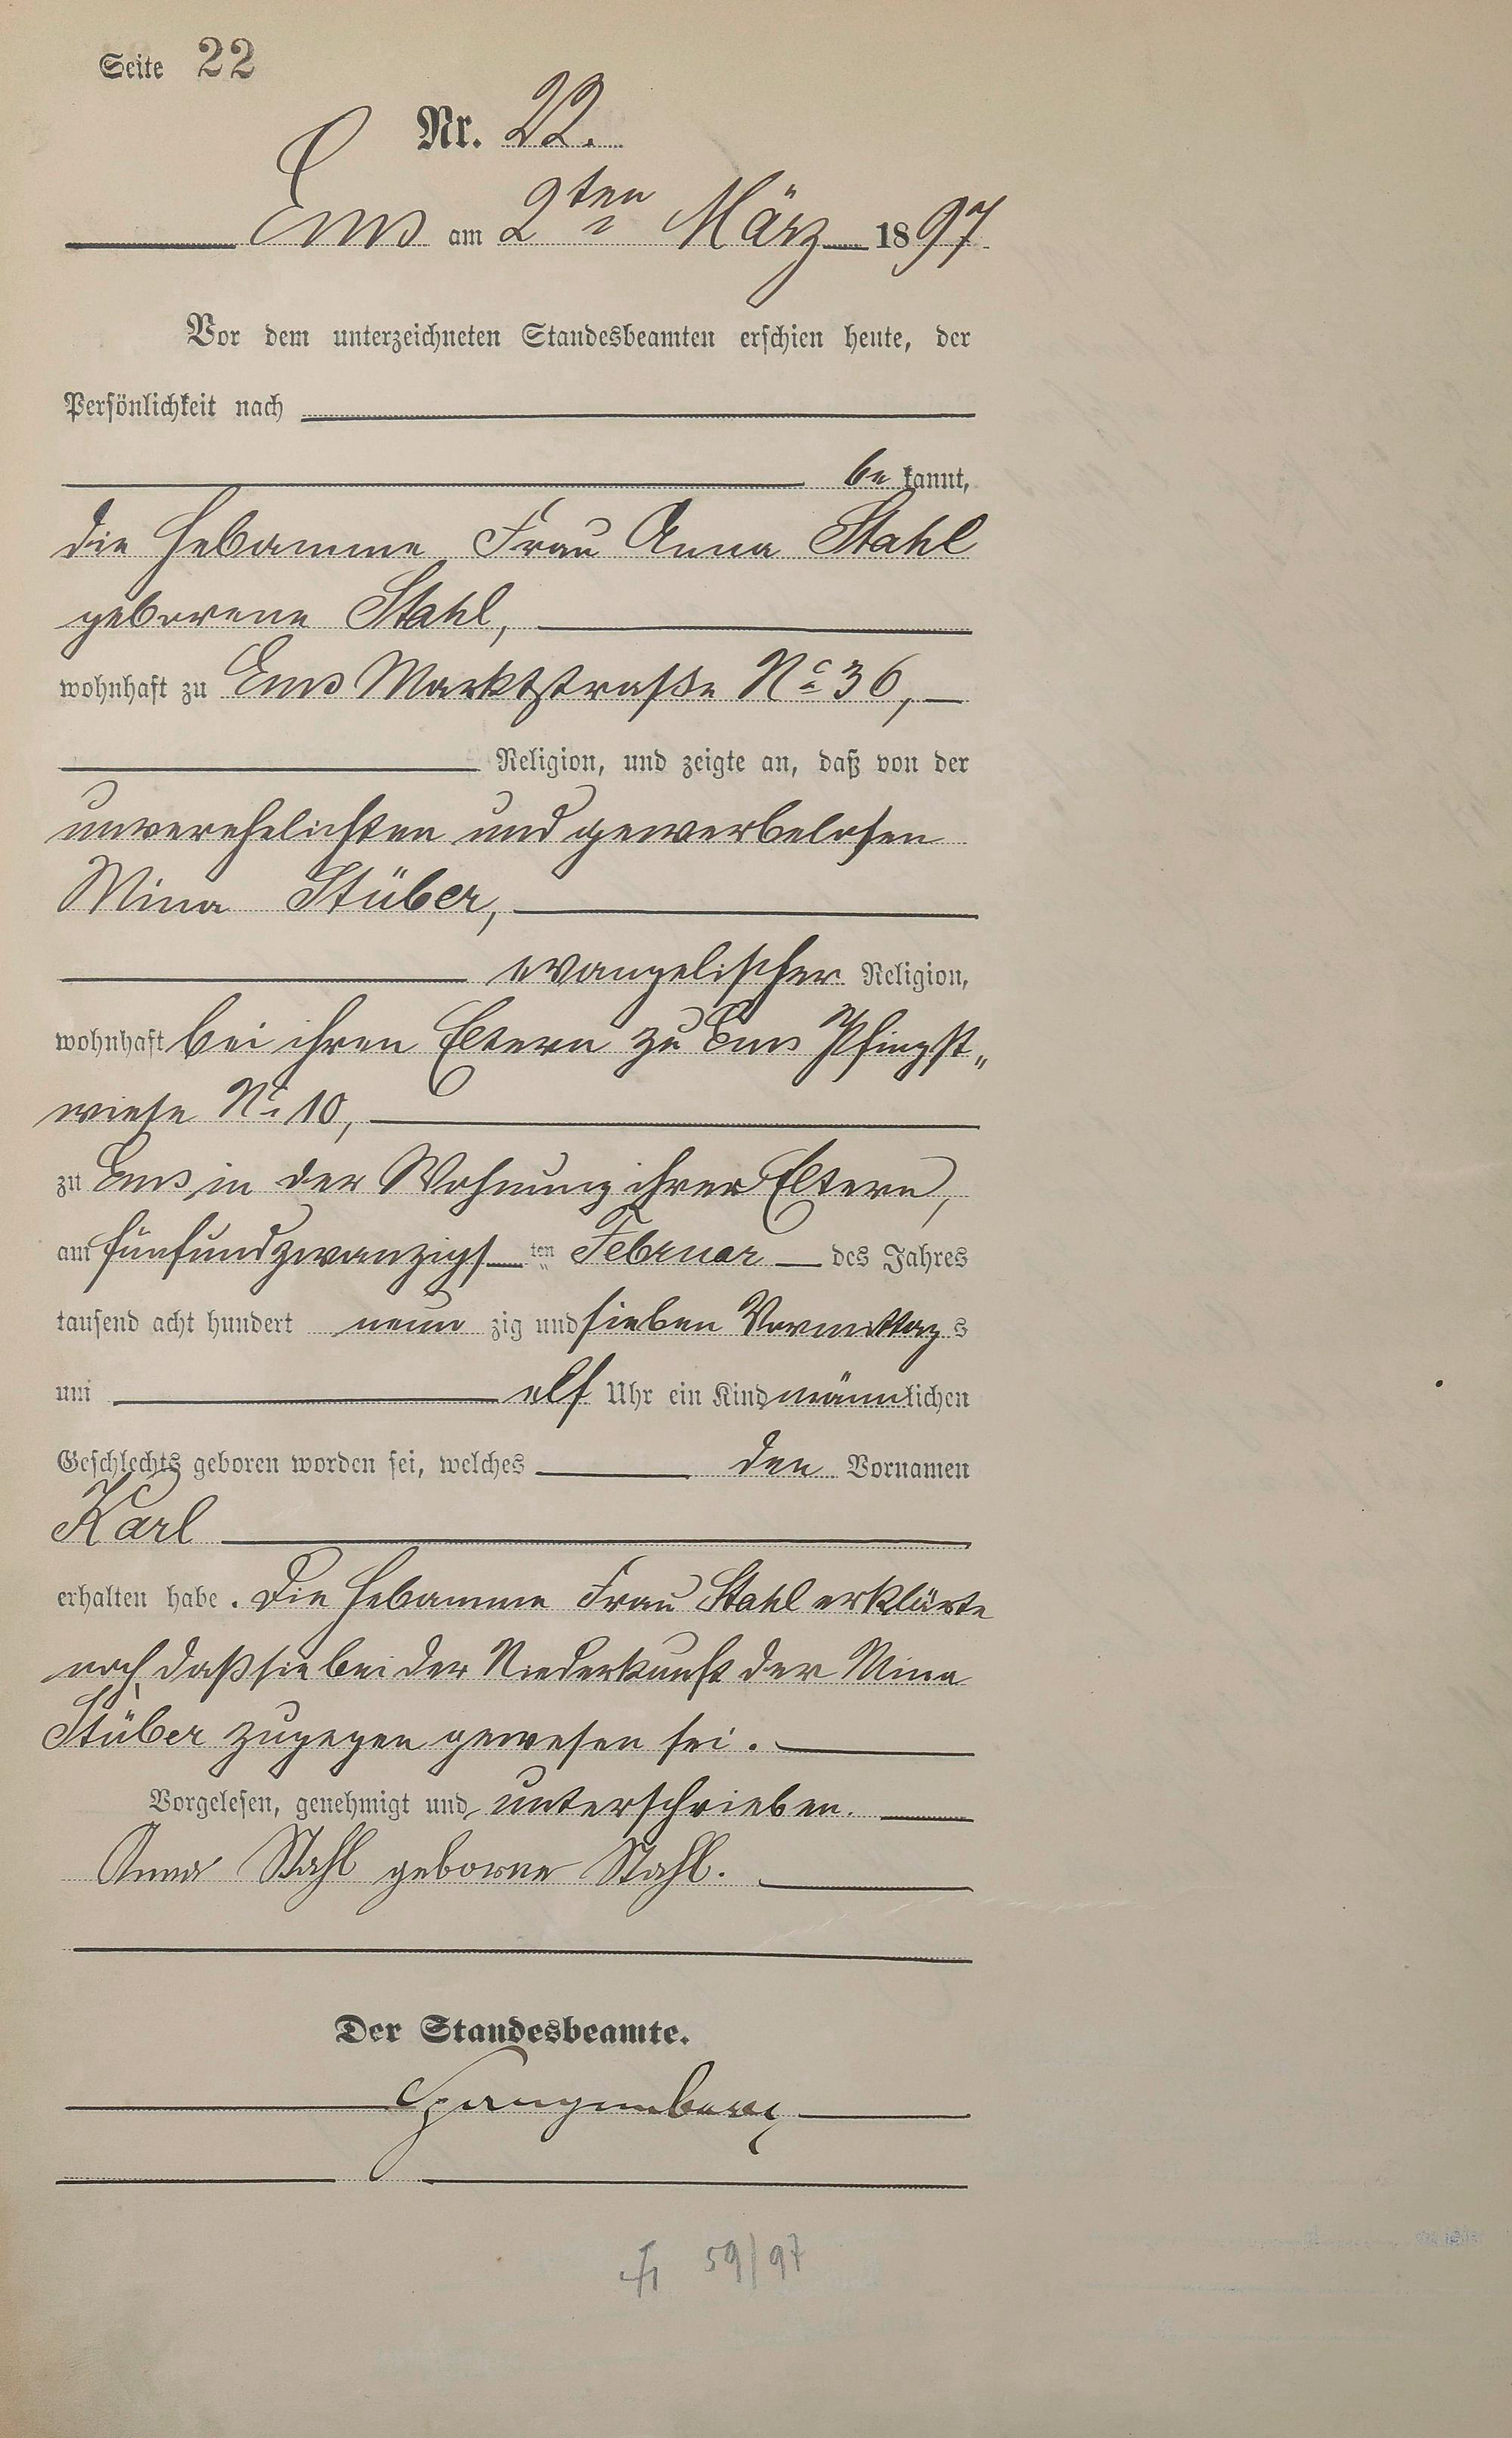 Seite 22
Nr. 22.
Ems am 2ten März 1897
Vor dem unterzeichneten Standesbeamten erschien heute, der
Persönlichkeit nach
bekannt,
die Hebamme Frau Anna Stahl
geborene Stahl,
wohnhaft zu Ems Marktstraße No 36,
Religion, und zeigte an, daß von der
unverehelichten und gewerbelosen
Mina Stüber,
evangelischer Religion,
wohnhaft bei ihren Eltern zu Ems Pfingst„
wiese No 10,
zu Ems in der Wohnung ihrer Eltern,
am fünfundzwanzigsten Februar des Jahres
tausend acht hundert neunzig und sieben Vormittags
um elf Uhr ein Kind männlichen
Geschlechts geboren worden sei, welches den Vornamen
Karl
erhalten habe. Die Hebamme Frau Stahl erklärte
noch, daß sie bei der Niederkunft der Mina
Stüber zugegen gewesen sei.
Vorgelesen, genehmigt und unterschrieben.
Anna Stahl geborne Stahl.
Der Standesbeamte.
Spangenberg
59/97